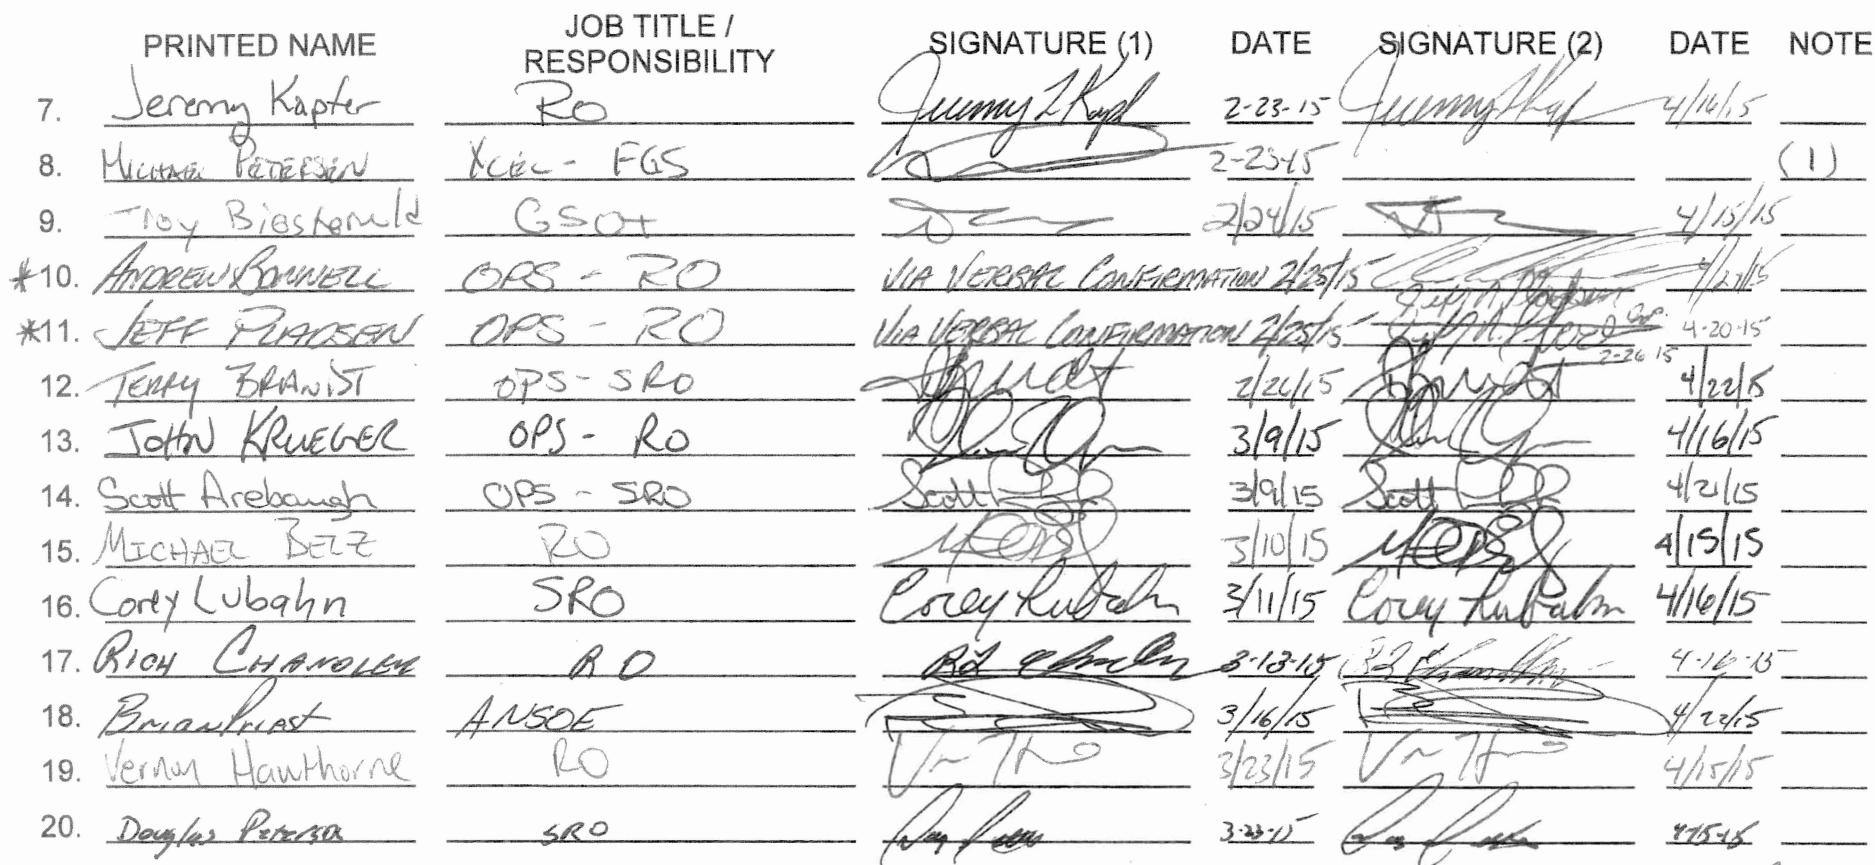 PRINTED NAME JOB TITLE / RESPONSIBILITY SIGNATURE (1) DATE SIGNATURE (2) DATE NOTE
7. Jeremy Kapfer RO Jeremy L Kapf 2-23-15 4/16/15
8. MICHAEL PETERSEN XCEL - FGS 2-23-15 (1)
9. Troy Biesterveld GSOT 2/24/15 4/15/15
*10. ANDREW BONNELL OPS - RO VIA VERBAL CONFIRMATION 2/25/15
*11. JEFF PLADSEN OPS - RO VIA VERBAL CONFIRMATION 2/25/15 2-26-15 4-20-15
12. TERRY BRANDT OPS - SRO 2/26/15 4/22/15
13. JOHN KRUEGER OPS - RO 3/9/15 4/16/15
14. Scott Arebaugh OPS - SRO Scott 3/9/15 Scott 4/21/15
15. MICHAEL BELZ RO 3/10/15 4/15/15
16. Corey Lubahn SRO Corey Lubahn 3/11/15 Corey Lubahn 4/16/15
17. RICH CHANDLER RO 3-13-15 4-16-15
18. Brian Priest ANSOE 3/16/15 4/22/15
19. Vernon Hawthorne RO 3/23/15 4/15/15
20. Douglas Peterson SRO 3-23-15 4-15-15